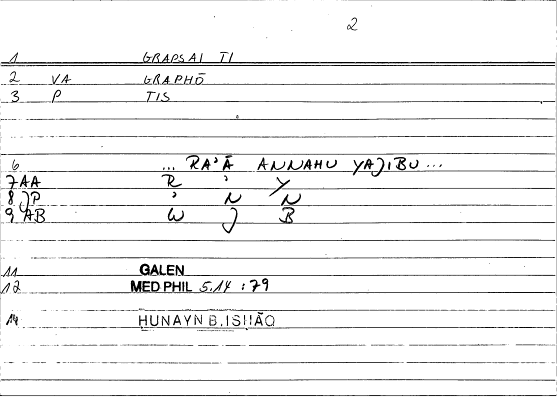 2
1 GRAPSAI TI
2 VA GRAPHŌ
3 P TIS
6 ... RA'Ā ANNAHU YAJIBU ...
7 AA R ' Y
8 JP ' N N
9 AB W J B
11 GALEN
12 MED PHIL 5.14 : 79
14 HUNAYN B. ISḤĀQ